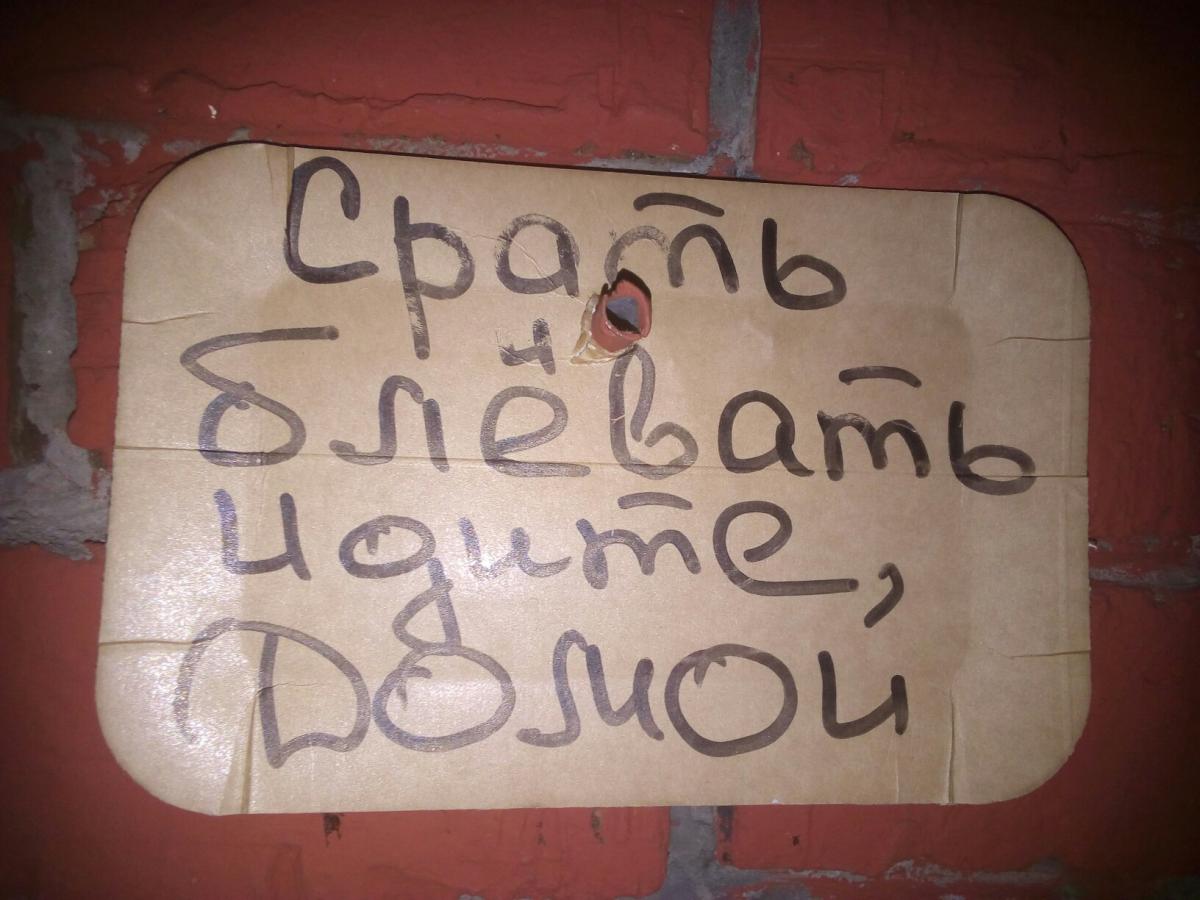 Срать
и
блёвать
идите,
Домой